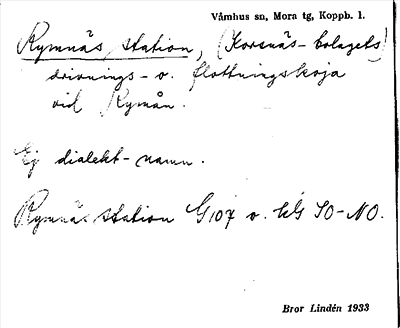 Våmhus sn, Mora tg, Koppb. l.
Rymnäs station, (Korsnäs-bolagets)
drivnings- o. flottningskoja
vid Rymån.
Ej dialekt-namn.
Rymnäs station G107 o. SO-NO.
Bror Lindén 1933